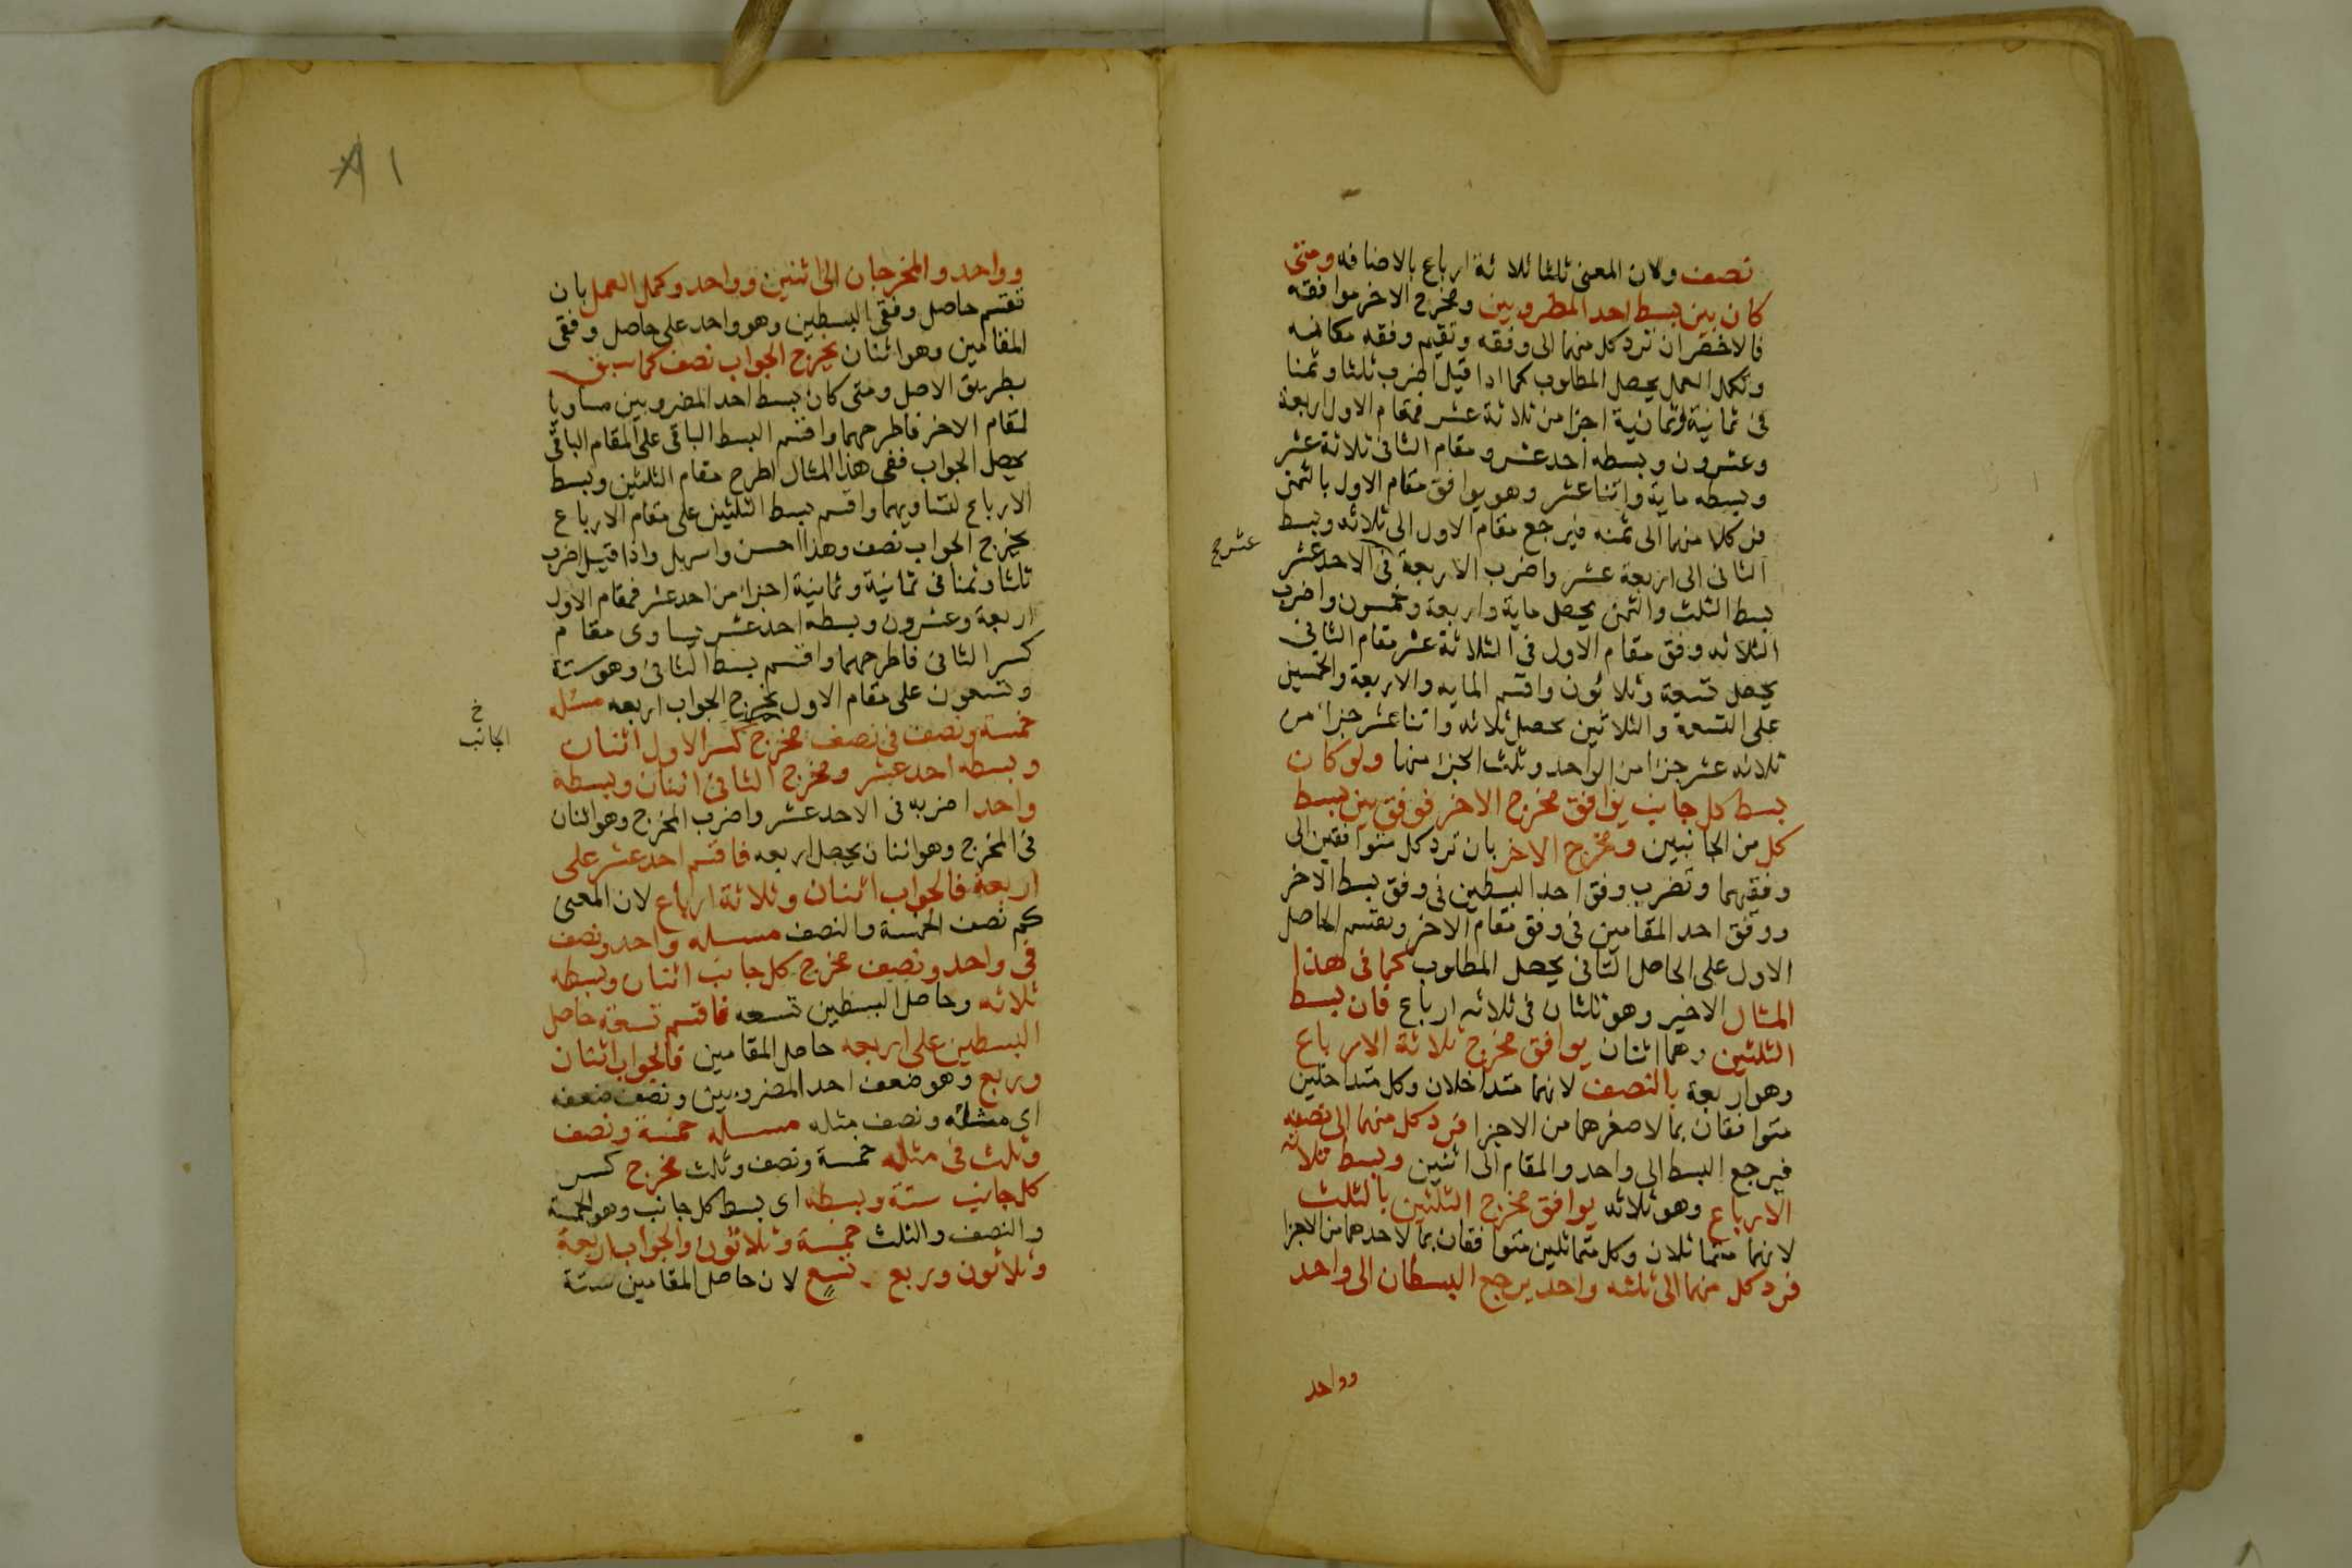 نصف ولان المعنى ثلثا ثلاثة ارباع بالاضافه ومتى
كان بين بسط احد المضروبين ومخرج الاخر موافقه
فالاخصر ان ترد كل منهما الى وفقه وتقيم وفقه مكانه
وتكمل العمل يحصل المطلوب كما اذا قيل اضرب ثلثا وثمنا
فى ثمانية وثمانية اجزا من ثلاثة عشر فمقام الاول اربعة
وعشرون وبسطه احد عشر ومقام الثانى ثلاثة عشر
وبسطه ماية واثنا عشر وهو يوافق مقام الاول بالثمن
فرد كلا منهما الى ثمنه فيرجع مقام الاول الى ثلاثه وبسط
الثانى الى اربعة عشر واضرب الاربعة فى الاحد عشر
عشر صح
بسط الثلث والثمن يحصل ماية واربعة وخمسون واضرب
الثلاثه وفق مقام الاول فى الثلاثة عشر مقام الثانى
يحصل تسعة وثلاثون واقسم المايه والاربعة والخمسين
على التسعة والثلاثين يحصل ثلاثه واثنا عشر جزا من
ثلاثه عشر جزا من الواحد وثلث الجزء منها ولو كان
بسط كل جانب يوافق مخرج الاخر فوفق بين بسط
كل من الجانبين ومخرج الاخر بان ترد كل متوافقين الى
وفقهما وتضرب وفق احد البسطين فى وفق بسط الاخر
ووفق احد المقامين فى وفق مقام الاخر وتقسم الحاصل
الاول على الحاصل الثانى يحصل المطلوب كما فى هذا
المثال الاخير وهو ثلثان فى ثلاثه ارباع فان بسط
الثلثين وهما اثنان يوافق مخرج ثلاثة الارباع
وهو اربعة بالنصف لانهما متداخلان وكل متداخلين
متوافقان بما لاصغرهما من الاجزا فرد كل منهما الى نصفه
فيرجع البسط الى واحد والمقام الى اثنين وبسط ثلاثه
الارباع وهو ثلاثه يوافق مخرج الثلثين بالثلث
لانهما متماثلان وكل متماثلين متوافقان بما لاحدهما من الاجزا
فرد كل منهما الى ثلثه واحد يرجع البسطان الى واحد
وواحد
٨١
وواحد والمخرجان الى اثنين وواحد وكمل العمل بان
تقسم حاصل وفقى البسطين وهو واحد على حاصل وفقى
المقامين وهو اثنان يخرج الجواب نصف كما سبق
بطريق الاصل ومتى كان بسط احد المضروبين مساويا
لمقام الاخر فاطرحهما واقسم البسط الباقى على المقام الباقى
يحصل الجواب ففى هذا المثال اطرح مقام الثلثين وبسط
الارباع لتساويهما واقسم بسط الثلثين على مقام الارباع
يخرج الجواب نصف وهذا احسن واسهل واذا قيل اضرب
ثلثا وثمنا فى ثمانية وثمانية اجزا من احد عشر فمقام الاول
اربعة وعشرون وبسطه احد عشر يساوى مقام
كسر الثانى فاطرحهما واقسم بسط الثانى وهو ستة
وتسعون على مقام الاول يخرج الجواب اربعه مسئله
خمسة ونصف فى نصف مخرج كسر الاول اثنان
خ
الجانب
وبسطه احد عشر ومخرج الثانى اثنان وبسطه
واحد اضربه فى الاحد عشر واضرب المخرج وهو اثنان
فى المخرج وهو اثنان يحصل اربعه فاقسم احد عشر على
اربعة فالجواب اثنان وثلاثة ارباع لان المعنى
كم نصف الخمسة والنصف مسله واحد ونصف
فى واحد ونصف مخرج كل جانب اثنان وبسطه
ثلاثه وحاصل البسطين تسعه فاقسم تسعة حاصل
البسطين على اربعه حاصل المقامين فالجواب اثنان
وربع وهو ضعف احد المضروبين ونصف ضعفه
اى مثله ونصف مثله مسله خمسة ونصف
وثلث فى مثله خمسة ونصف وثلث مخرج كسر
كل جانب ستة وبسطه اى بسط كل جانب وهو الخمسة
والنصف والثلث خمسة وثلاثون والجواب اربعة
وثلاثون وربع تسع لان حاصل المقامين ستة